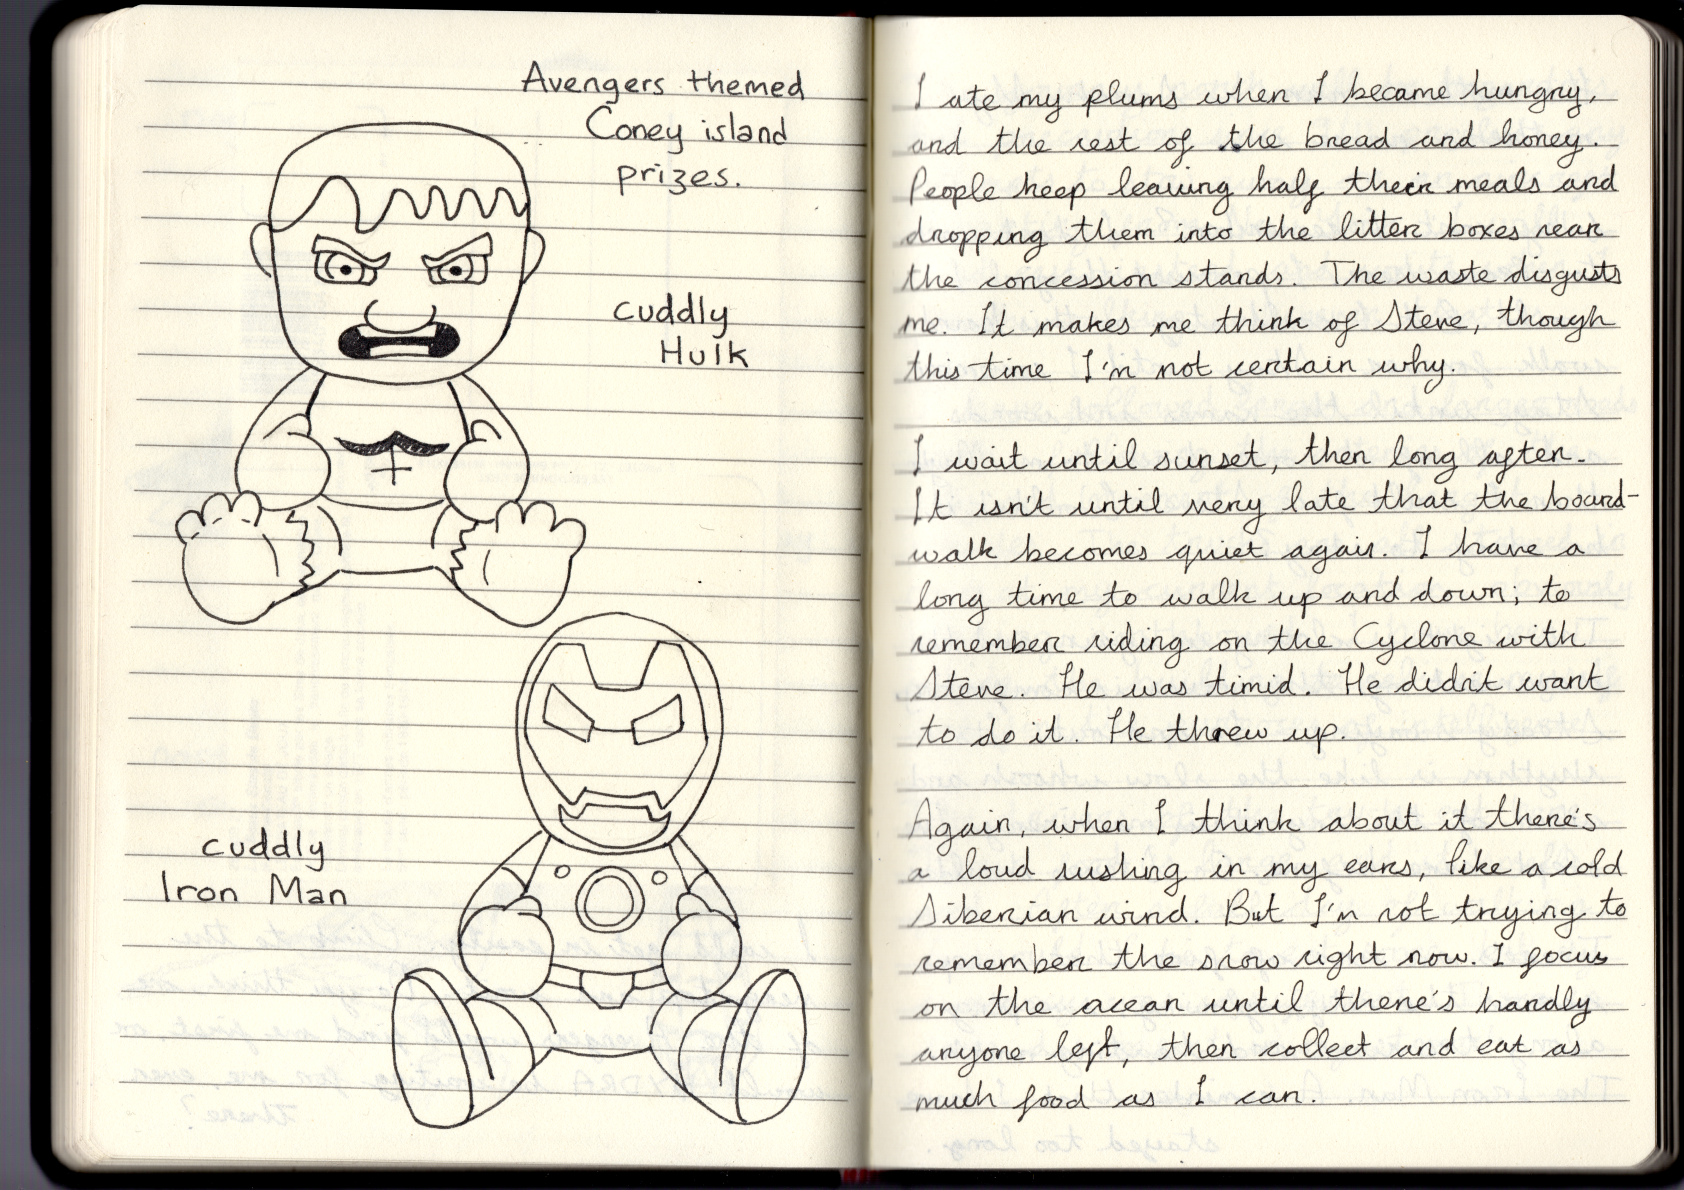 Avengers themed
Coney island
prizes.
cuddly
Hulk
cuddly
Iron Man
I ate my plums when I became hungry,
and the rest of the bread and honey.
People keep leaving half their meals and
dropping them into the litter boxes near
the concession stands. The waste disgusts
me. It makes me think of Steve, though
this time I'm not certain why.
I wait until sunset, then long after.
It isn't until very late that the board-
walk becomes quiet again. I have a
long time to walk up and down; to
remember riding on the Cyclone with
Steve. He was timid. He didn't want
to do it. He threw up.
Again, when I think about it there's
a loud rushing in my ears, like a cold
Siberian wind. But I'm not trying to
remember the snow right now. I focus
on the ocean until there's hardly
anyone left, then collect and eat as
much food as I can.